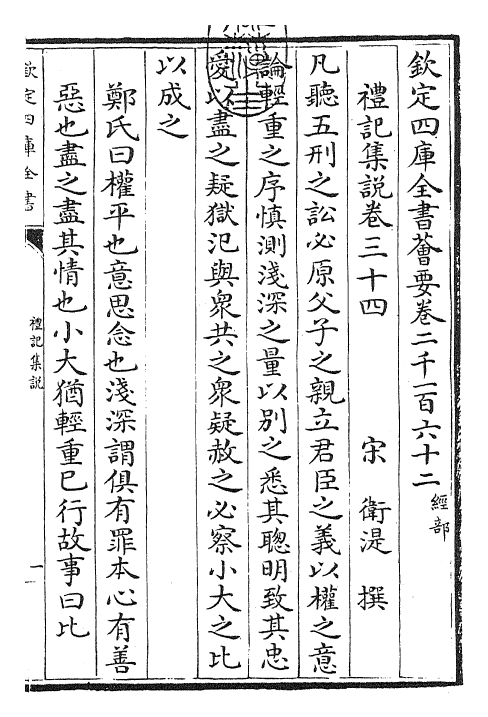 欽定四庫全書薈要卷二千一百六十二 經部
禮記集說卷三十四 宋 衛湜 撰
凡聽五刑之訟必原父子之親立君臣之義以權之意
論輕重之序慎測淺深之量以别之悉其聰明致其忠
愛以盡之疑獄氾與衆共之衆疑赦之必察小大之比
以成之
鄭氏曰權平也意思念也淺深謂俱有罪本心有善
惡也盡之盡其情也小大猶輕重已行故事曰比
欽定四庫全書
禮記集說
一